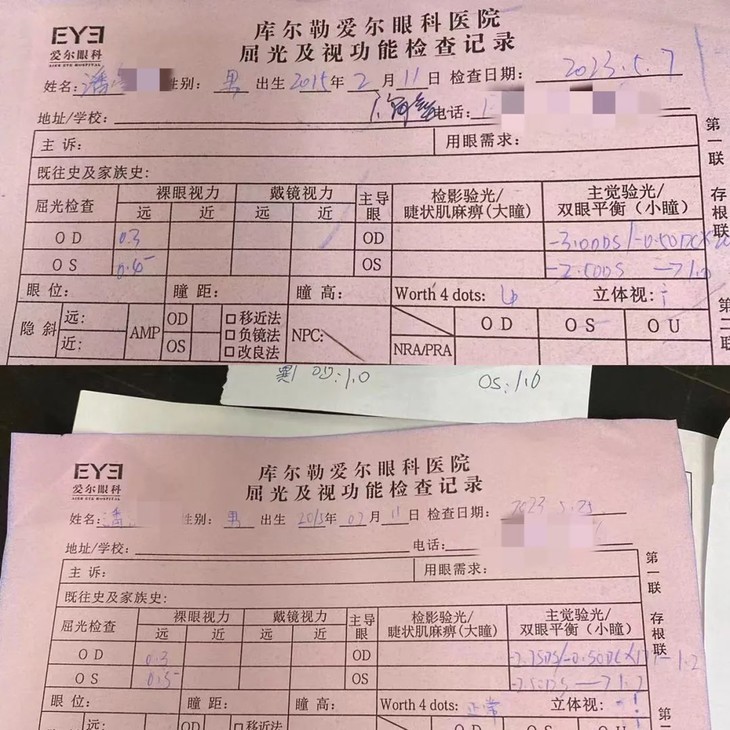 EYE
爱尔眼科
AIER EYE HOSPITAL
库尔勒爱尔眼科医院
屈光及视功能检查记录
姓名: 潘 性别: 男 出生 2015年 2 月 11 日 检查日期: 2023.5.7
地址/学校: 电话:
主 诉: 用眼需求:
既往史及家族史:
屈光检查 裸眼视力 戴镜视力 主导眼 检影验光/睫状肌麻痹(大瞳) 主觉验光/双眼平衡(小瞳)
远 近 远 近
OD 0.3 OD -3.00DS/-0.50DC×
OS 0.4 OS -2.50DS →1.0
眼 位: 瞳 距: 瞳 高: Worth 4 dots: 4 立体视:
隐 斜 远: AMP OD □ 移近法 NPC: OD OS OU
近: OS □ 负镜法
□ 改良法 NRA/PRA
第一联 存根联
第二联
OD:1.0 OS:1.0
EYE
爱尔眼科
AIER EYE HOSPITAL
库尔勒爱尔眼科医院
屈光及视功能检查记录
姓名: 潘 性别: 男 出生 2015年 02 月 11 日 检查日期: 2023.5.
地址/学校: 电话:
主 诉: 用眼需求:
既往史及家族史:
屈光检查 裸眼视力 戴镜视力 主导眼 检影验光/睫状肌麻痹(大瞳) 主觉验光/双眼平衡(小瞳)
远 近 远 近
OD 0.3 OD /-0.50DC× 1.2
OS 0.5 OS
眼 位: 瞳 距: 瞳 高: Worth 4 dots: 正常 立体视:
远: OD □ 移近法 OD OS OU
第一联 存根联
第二